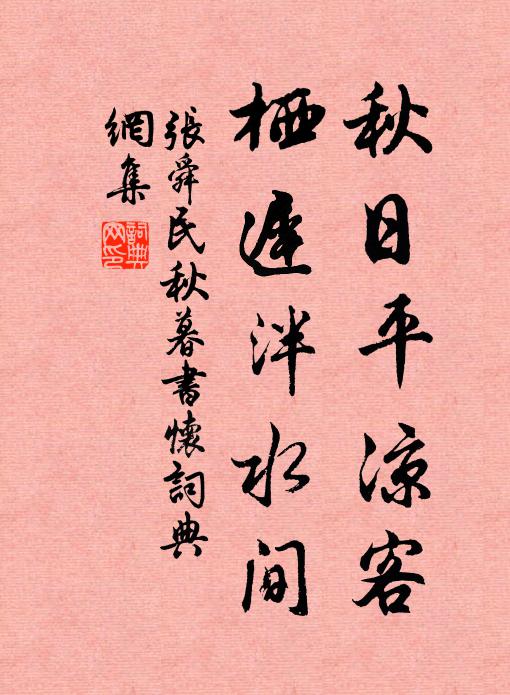 秋日平凉客
栖遲泮水间
張舜民秋暮書懷詞典
網集
詞典
网印